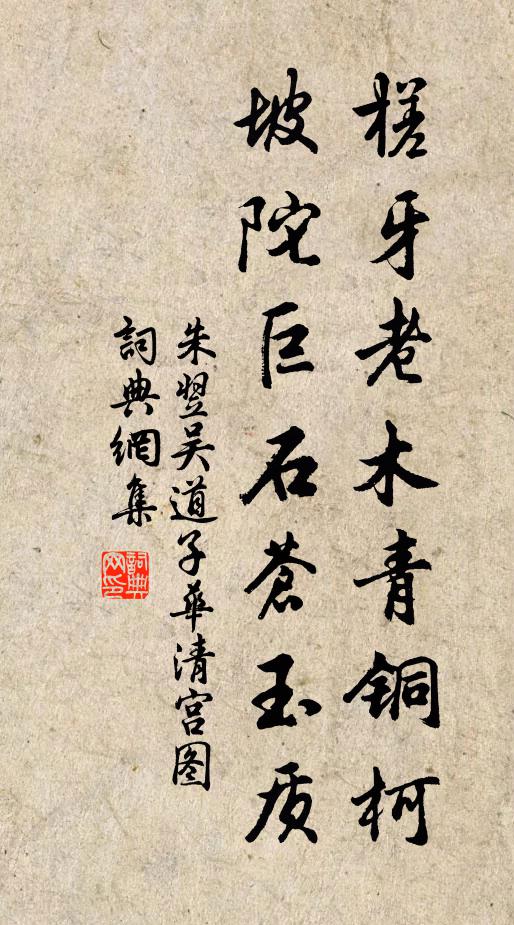 槎牙老木青铜柯
坡陀巨石苍玉质
朱翌吴道子华清宫图
詞典網集
詞典网印